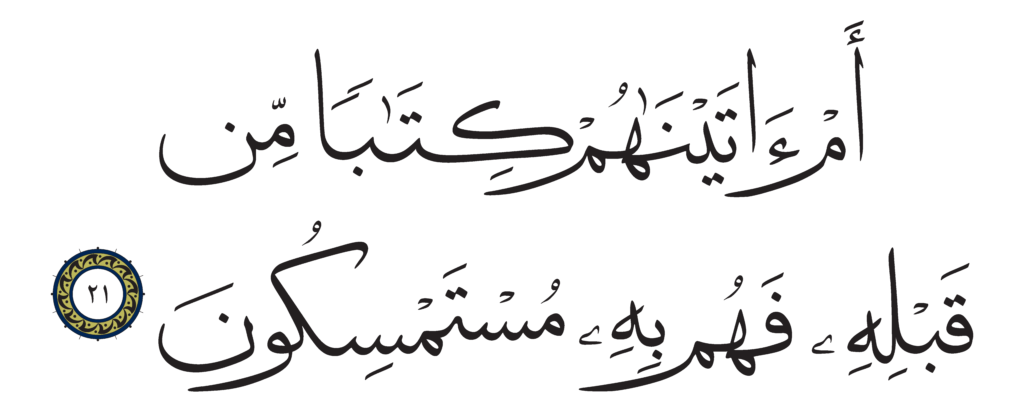 أَمْ ءَاتَيْنَٰهُمْ كِتَٰبًا مِّن
قَبْلِهِۦ فَهُم بِهِۦ مُسْتَمْسِكُونَ ٢١